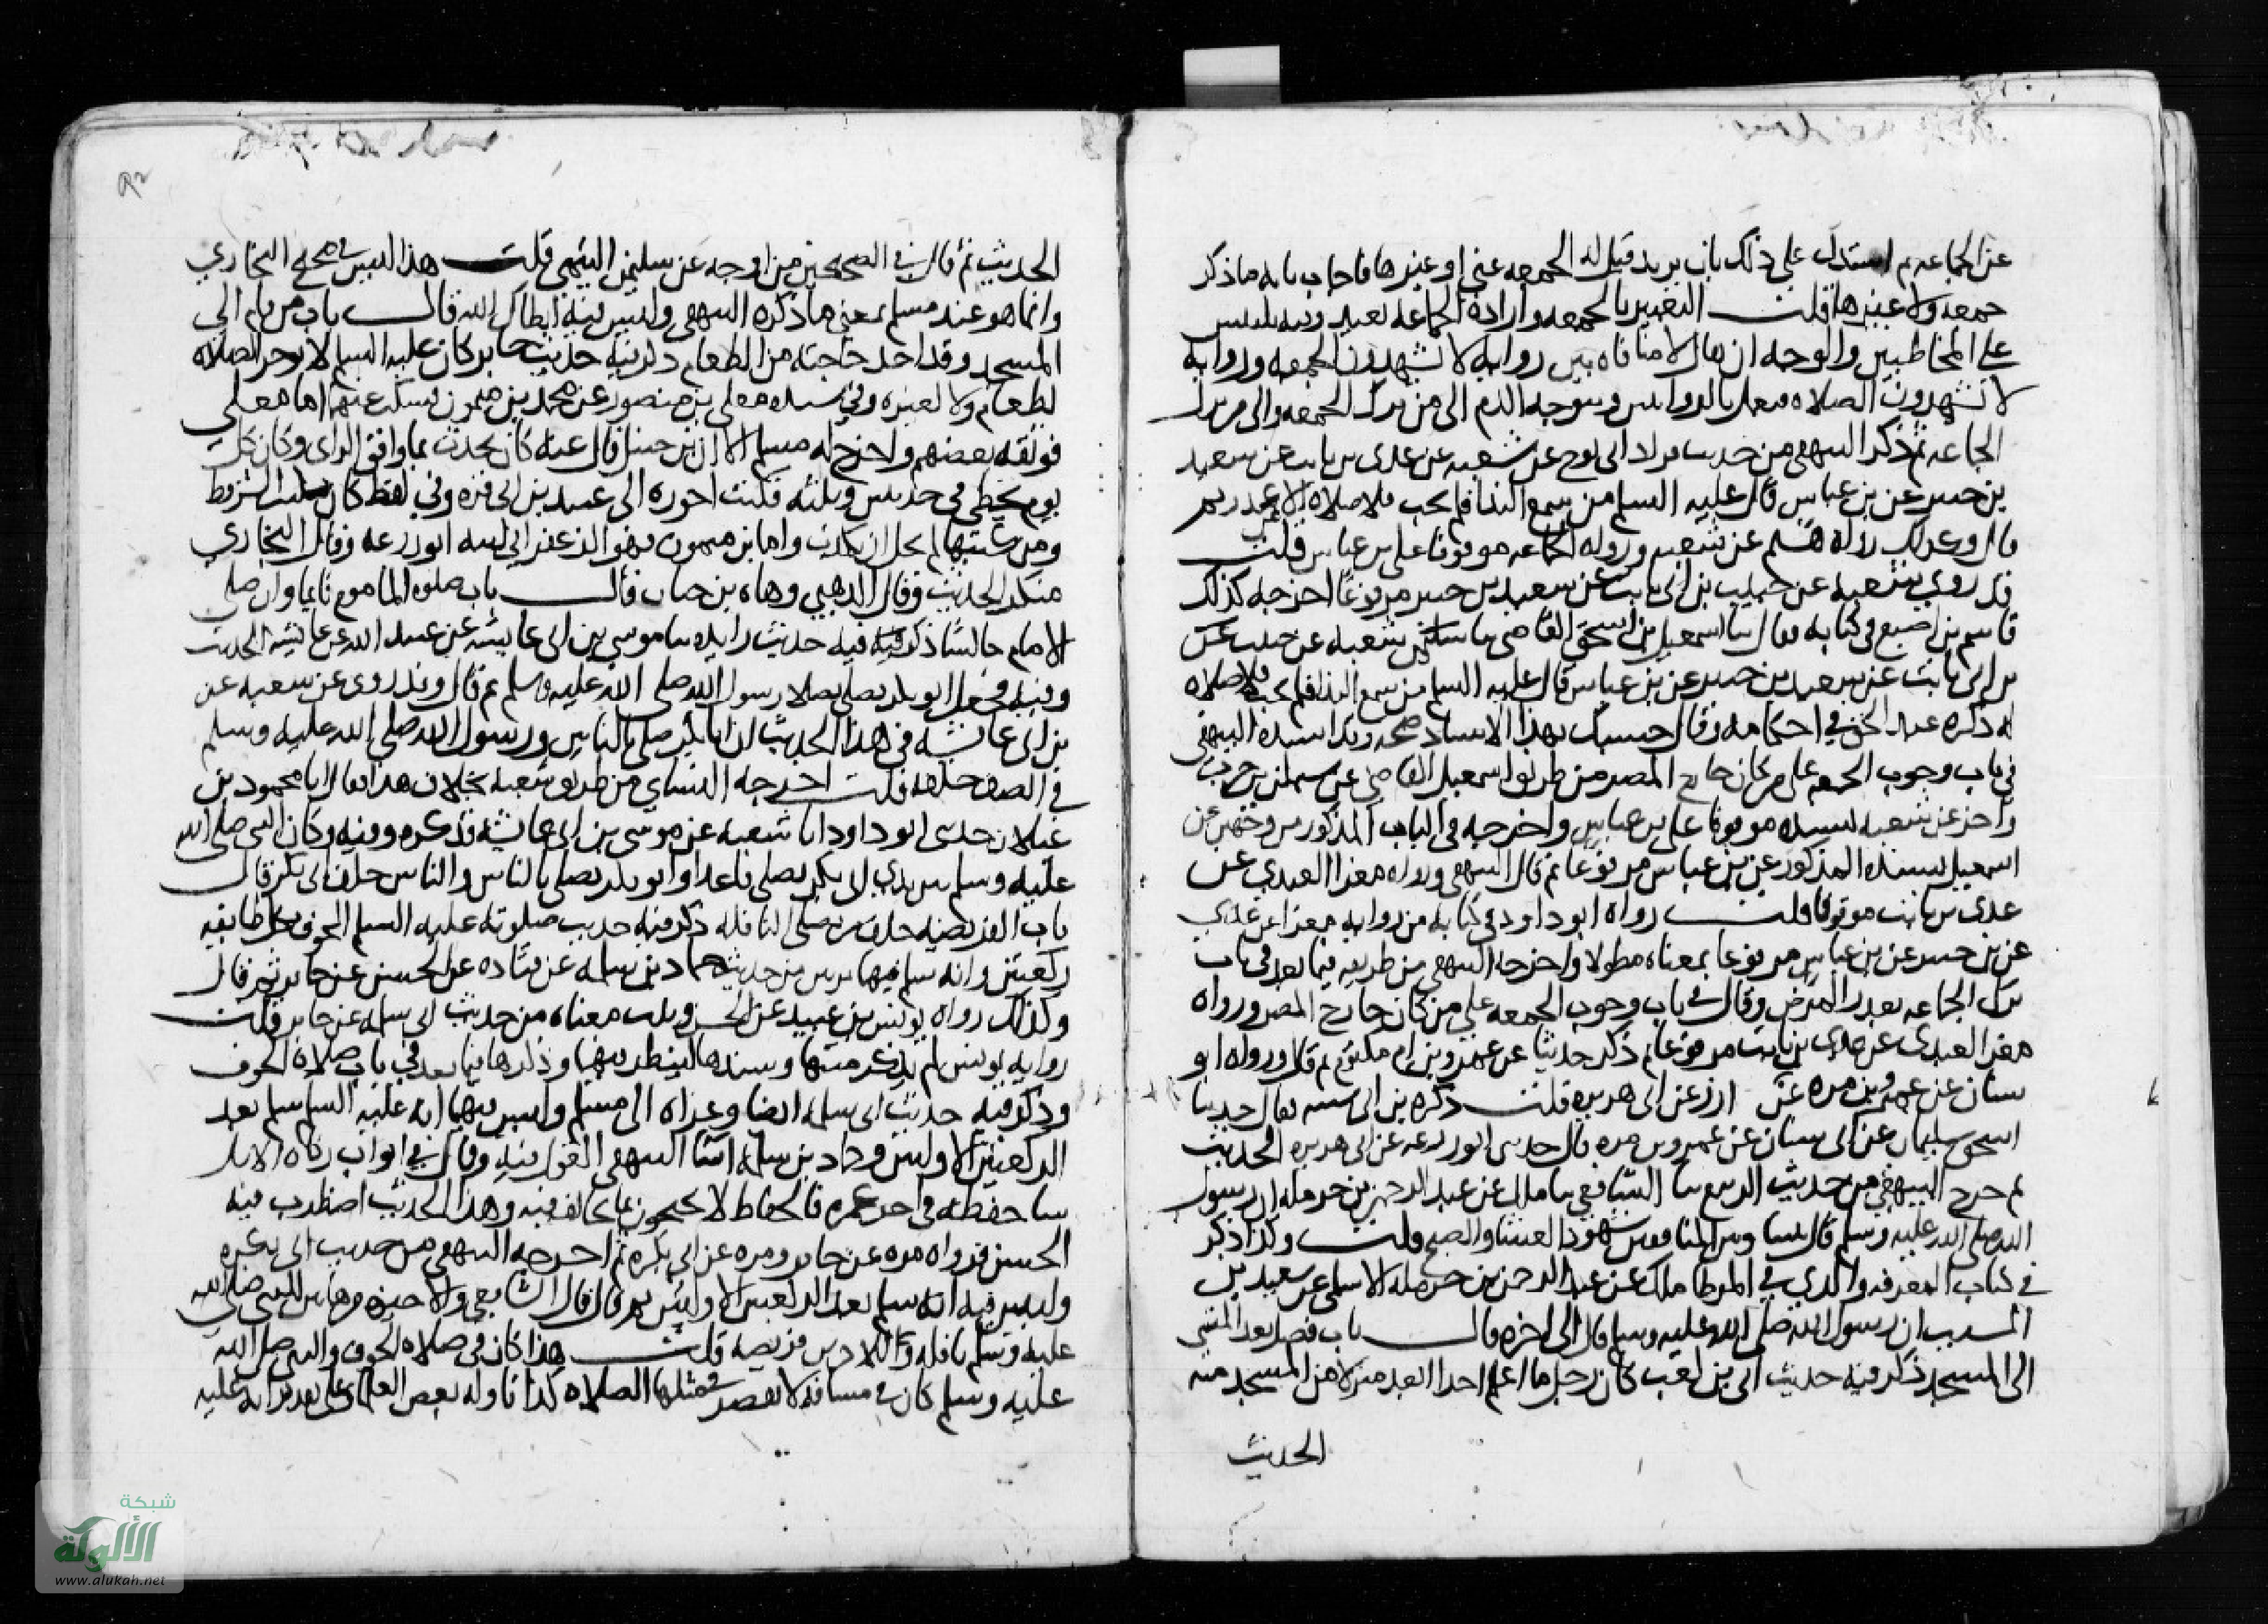 عن الجماعه ثم استدل على ذلك بان يزيد قيل له الجمعه عنى او غيرها فاجاب بانه ما ذكر
جمعه ولا غيرها قلت التعبير بالجمعه وارادة الجماعه بعيد وفيه تلبيس
على المخاطبين والوجه ان يقال لا منافاه بين روايه لا تشهدون الجمعه وروايه
لا تشهدون الصلاه فيعمل بالروايتين ويتوجه الذم الى من ترك الجمعه والى من ترك
الجماعه ثم ذكر البيهقي من حديث قراد ابى نوح عن شعبه عن عدى بن ثابت عن سعيد
بن جبير عن بن عباس قال عليه السلم من سمع الندا فلم يجب فلا صلاه له الا من عذر ثم
قال وكذلك رواه هشيم عن شعبه ورواه الجماعه موقوفا على بن عباس قلت
قد روى شعبه عن حبيب بن ابى ثابت عن سعيد بن جبير مرفوعا اخرجه كذلك
قاسم بن اصبغ فى كتابه فقال ثنا اسمعيل بن اسحق القاضى ثنا سليمن ثنا شعبه عن حبيب عن
بن ابى ثابت عن سعيد بن جبير عن بن عباس قال عليه السلم من سمع الندا فلم يجب فلا صلاه
له ذكره عبد الحق في احكامه وقال حسبك بهذا الاسناد صحه وقد اسنده البيهقى
في باب وجوب الجمعه على من كان خارج المصر من طريق اسمعيل القاضى عن سليمان بن حرب
واخر عن شعبه بسنده موقوفا على بن عباس واخرجه فى الباب المذكور من وجهين عن
اسمعيل بسنده المذكور عن بن عباس مرفوعا ثم قال البيهقى ورواه مغرا العبدي عن
عدى بن ثابت موقوفا قلت رواه ابو داود فى كتابه من روايه مغرا عن عدى
عن بن جبير عن بن عباس مرفوعا بمعناه مطولا واخرجه البيهقى من طريقه فيما بعد فى باب
ترك الجماعه بعذر المرض وقال في باب وجوب الجمعه على من كان خارج المصر ورواه
مغرا العبدى عن عدى بن ثابت مرفوعا ثم ذكر حديثا عن عمرو بن ام مكتوم ثم قال ورواه ابو
سنان عن عمرو بن مره عن ابى رزين عن ابى هريره قلت ذكره بن ابى شيبه فقال حدثنا
اسحق بن سليمان عن ابى سنان عن عمرو بن مره قال حدثنى ابو زرعه عن ابى هريره الحديث
ثم خرج البيهقي من حديث الربيع ثنا الشافعي ثنا مالك عن عبد الرحمن بن حرمله ان رسول
الله صلى الله عليه وسلم قال بيننا وبين المنافقين شهود العشا والصبح قلت وكذا ذكر
في كتاب المعرفه والذي في الموطا مالك عن عبد الرحمن بن حرمله الاسلمى عن سعيد بن
المسيب ان رسول الله صلى الله عليه وسلم قال الى اخره قال باب فضل بعد المشى
الى المسجد ذكر فيه حديث ابى بن كعب كان رجل ما اعلم احدا ابعد منزلا من المسجد منه
الحديث
٩٢
الحديث ثم قال في الصحيحين من اوجه عن سليمن التيمى قلت هذا ليس فى صحيح البخاري
وانما هو عند مسلم بمعنى ما ذكره البيهقى وليس فيه انطاك الله قال باب من قام الى
المسجد وقد اخذ حاجته من الطعام ذكر فيه حديث جابر كان عليه السلم لا يوخر الصلاه
لطعام ولا لغيره وفي سنده معلى بن منصور عن محمد بن ميمون فسكت عنهما اما معلى
فوثقه بعضهم واخرج له مسلم الا ان بن حنبل قال عنه كان يحدث بما وافق الراى وكان كل
يوم يخطى فى حديثين وثلثه فكنت اجوزه الى عبيد بن ابى قره وفى لفظ كان يكتب الشروط
ومن كتبها لم يخل ان يكذب واما بن ميمون فهو الزعفرانى لينه ابو زرعه وقال البخاري
منكر الحديث وقال الذهبي وهاه بن حبان قال باب صلوه الماموم قايما وان صلى
الامام جالسا ذكر فيه حديث زايده ثنا موسى بن ابى عايشه عن عبيد الله عن عايشه الحديث
وفيه فجعل ابو بكر يصلى بصلاه رسول الله صلى الله عليه وسلم ثم قال وقد روى عن شعبه عن
بن ابى عائشه فى هذا الحديث ان ابا بكر صلى بالناس ورسول الله صلى الله عليه وسلم
في الصف خلفه قلت اخرجه النساى من طريق شعبه بخلاف هذا فقال انا محمود بن
غيلان حدثنى ابو داود انا شعبه عن موسى بن ابى عائشه فذكره وفيه وكان النبى صلى الله
عليه وسلم بين يدي ابى بكر يصلى قاعدا وابو بكر يصلى بالناس والناس خلف ابى بكر قال
باب الفريضه خلف من يصلى النافله ذكر فيه حديث صلوته عليه السلم الخوف بكل طايفه
ركعتين وانه سلم فيهما مرتين من حديث حماد بن سلمه عن قتاده عن الحسن عن جابر ثم قال
وكذلك رواه يونس بن عبيد عن الحسن وثبت معناه من حديث ابى سلمه عن جابر قلت
روايه يونس لم يذكر متنها وسندها لينظر فيهما وذكرها فيما بعد فى باب صلاة الخوف
وذكر فيه حديث ابى سلمه ايضا وعزاه الى مسلم وليس فيهما انه عليه السلم سلم بعد
الركعتين الاوليين وحماد بن سلمه اسا البيهقى القول فيه وقال في ابواب زكاه الابل
سا حفظه فى اخر عمره فالحفاظ لا يحتجون بما يخالف فيه وهذا الحديث اضطرب فيه
الحسن فرواه مره عن جابر ومره عن ابى بكره ثم اخرجه البيهقى من حديث ابى بكره
وليس فيه انه سلم بعد الركعتين الاوليين ثم قال قال الشافعي والاخيره من هاتين للنبى صلى الله
عليه وسلم نافله وللاخرين فريضه قلت هذا كان فى صلاه الخوف والنبى صلى الله
عليه وسلم كان في مسافه لا تقصر فى مثلها الصلاه كذا تاوله بعض العلما وعلى تقدير انه عليه
شبكة
الألوكة
www.alukah.net